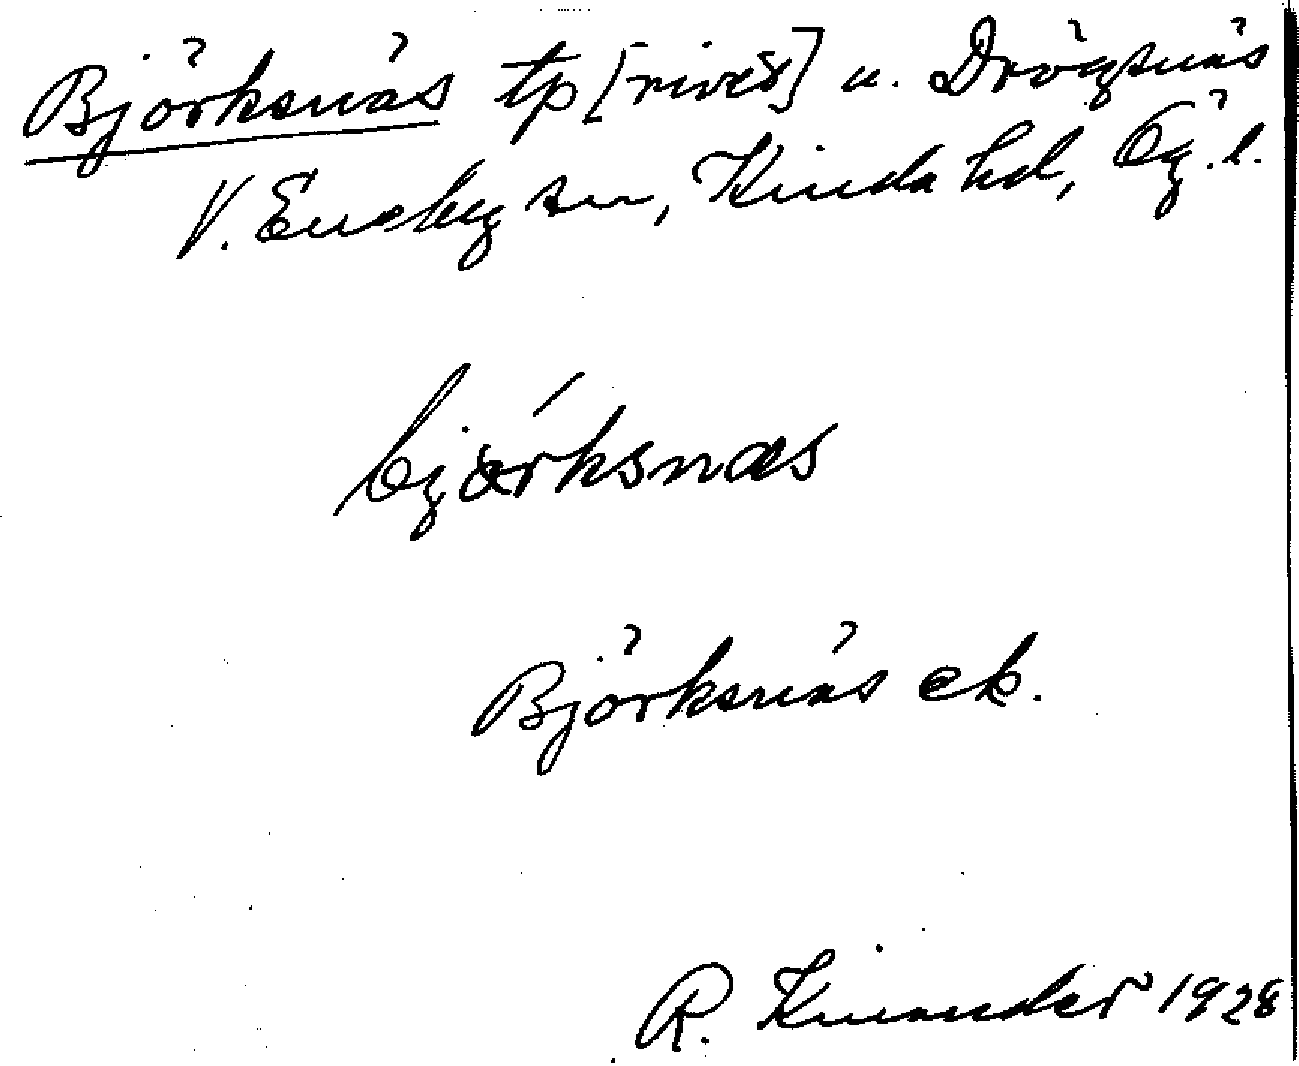 Björksnäs tp [rivet] u. Drögsnäs
V. Eneby sn, Kinda hd, Ög. l.
bjärksnäs
Björksnäs ek.
R. Kinander 1928